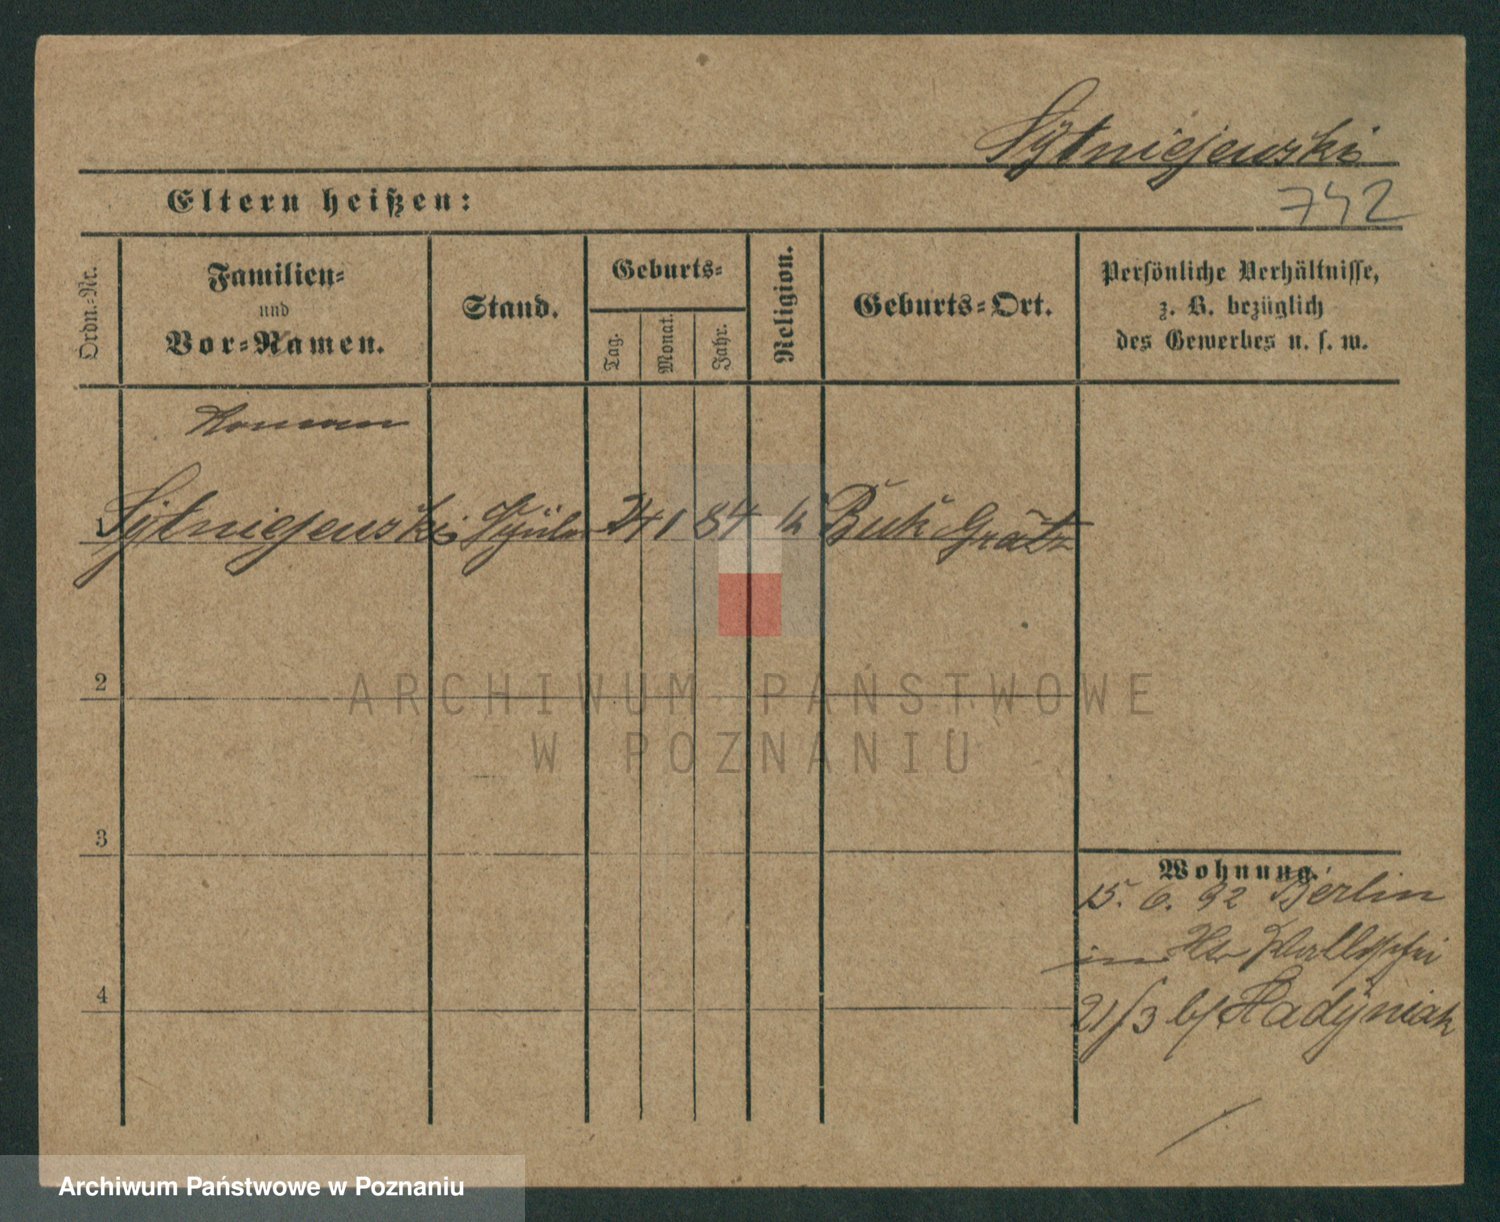 Sytniejewski
Eltern heißen:
742
Ordn.-Nr.
Familien-
und
Vor-Namen.
Stand.
Geburts-
Tag.
Monat.
Jahr.
Religion.
Geburts-Ort.
Persönliche Verhältnisse,
z. B. bezüglich
des Gewerbes u. s. w.
Roman
1 Sytniejewski Schüler 24 1 84 k Buk Grätz
2
ARCHIWUM PAŃSTWOWE
W POZNANIU
3
4
Wohnung.
15. 6. 92 Berlin
in
21/3 b/ Radyniak
Archiwum Państwowe w Poznaniu